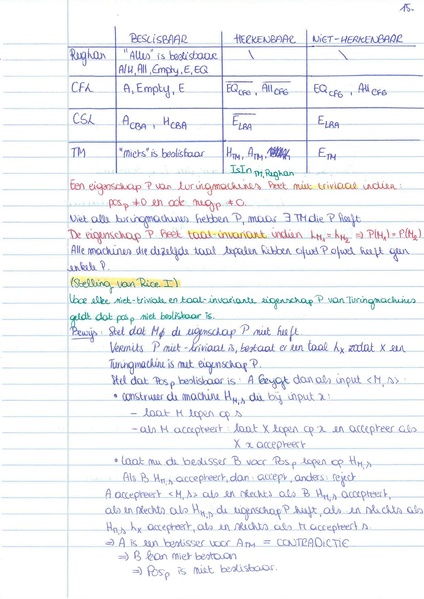 15.
BESLISBAAR HERKENBAAR NIET-HERKENBAAR
Reghan "Alles" is beslisbaar \ \
A/H, All, Empty, E, EQ
CFL A, Empty, E EQ_CFG, All_CFG EQ_CFG, All_CFG
CSL A_CBA, H_CBA E_LBA E_LBA
TM "niets" is beslisbaar H_TM, A_TM, E_TM
IsIn_TM,Reghan
Een eigenschap P van turingmachines heet niet triviaal indien:
pos_P ≠ 0 en ook neg_P ≠ 0.
Niet alle turingmachines hebben P, maar ∃ TM die P heeft
De eigenschap P heet taal-invariant indien L_M1 = L_M2 ⇒ P(M1) = P(M2)
Alle machines die dezelfde taal bepalen hebben ofwel P ofwel heeft geen
enkele P.
(Stelling van Rice I)
Voor elke niet-triviale en taal-invariante eigenschap P van Turingmachines
geldt dat pos_P niet beslisbaar is.
Bewijs: Stel dat M∅ de eigenschap P niet heeft.
Vermits P niet-triviaal is, bestaat er een taal L_X zodat X een
Turingmachine is met eigenschap P.
Stel dat Pos_P beslisbaar is: A krijgt dan als input <M, s>:
• construeer de machine H_M,s die bij input x:
- laat M lopen op s
- als M accepteert: laat X lopen op x en accepteer als
X x accepteert
• laat nu de beslisser B voor Pos_P lopen op H_M,s
Als B H_M,s accepteert, dan: accept, anders: reject
A accepteert <M, s> als en slechts als B H_M,s accepteert,
als en slechts als H_M,s de eigenschap P heeft, als en slechts als
H_M,s L_X accepteert, als en slechts als M accepteert s.
⇒ A is een beslisser voor A_TM = CONTRADICTIE
⇒ B kan niet bestaan
⇒ Pos_P is niet beslisbaar.